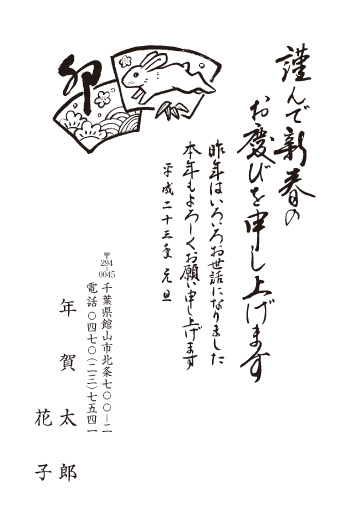 謹んで新春の
お慶びを申し上げます
昨年はいろいろお世話になりました
本年もよろしくお願い申し上げます
平成二十三年 元旦
卯
〒294-0045
千葉県館山市北条七〇〇ー二
電話〇四七〇(二三)七五四一
年賀太郎
花子